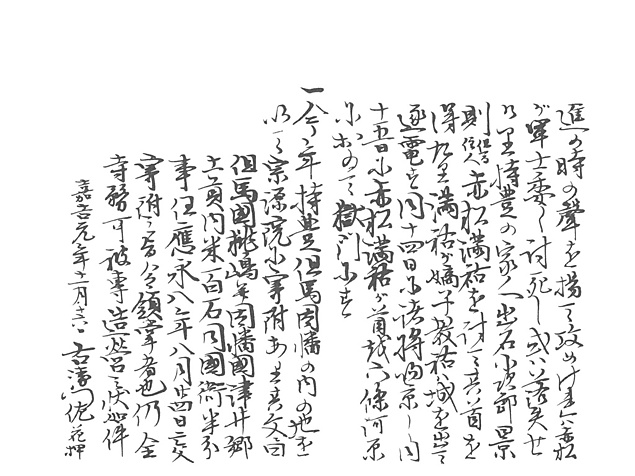 進ミ時の聲を揚て攻めけれハ赤松
が軍士悉く討死し或ハ落失せ
けり持豊の家人出石小次郎景
則但馬住人赤松満祐を討て其首を
得たり満祐が嫡子教祐ハ城を出て
逐電す同十四日に諸将帰京し同
十五日に赤松満祐が首級六條河原
におゐて獄門にす
一今年持豊但馬因幡の内の地を
以て宗源院に寄附あり其文曰
但馬國桃嶋并因幡國津井郷
土貢内米百石同國衙半分
事任應永八年八月廿四日之文
寄附之旨令領掌者也仍全
寺務可被専造營之状如件
嘉吉元年十二月 右衛門佐花押